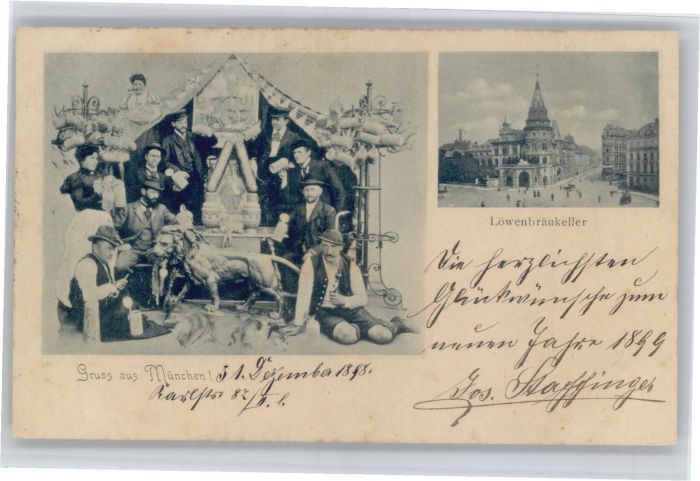 Löwenbräukeller
Die herzlichsten
Glückwünsche zum
neuen Jahre 1899
Jos. Staffinger
Gruss aus München! 31. Dezember 1898.
Karlstr. 82/I. l.